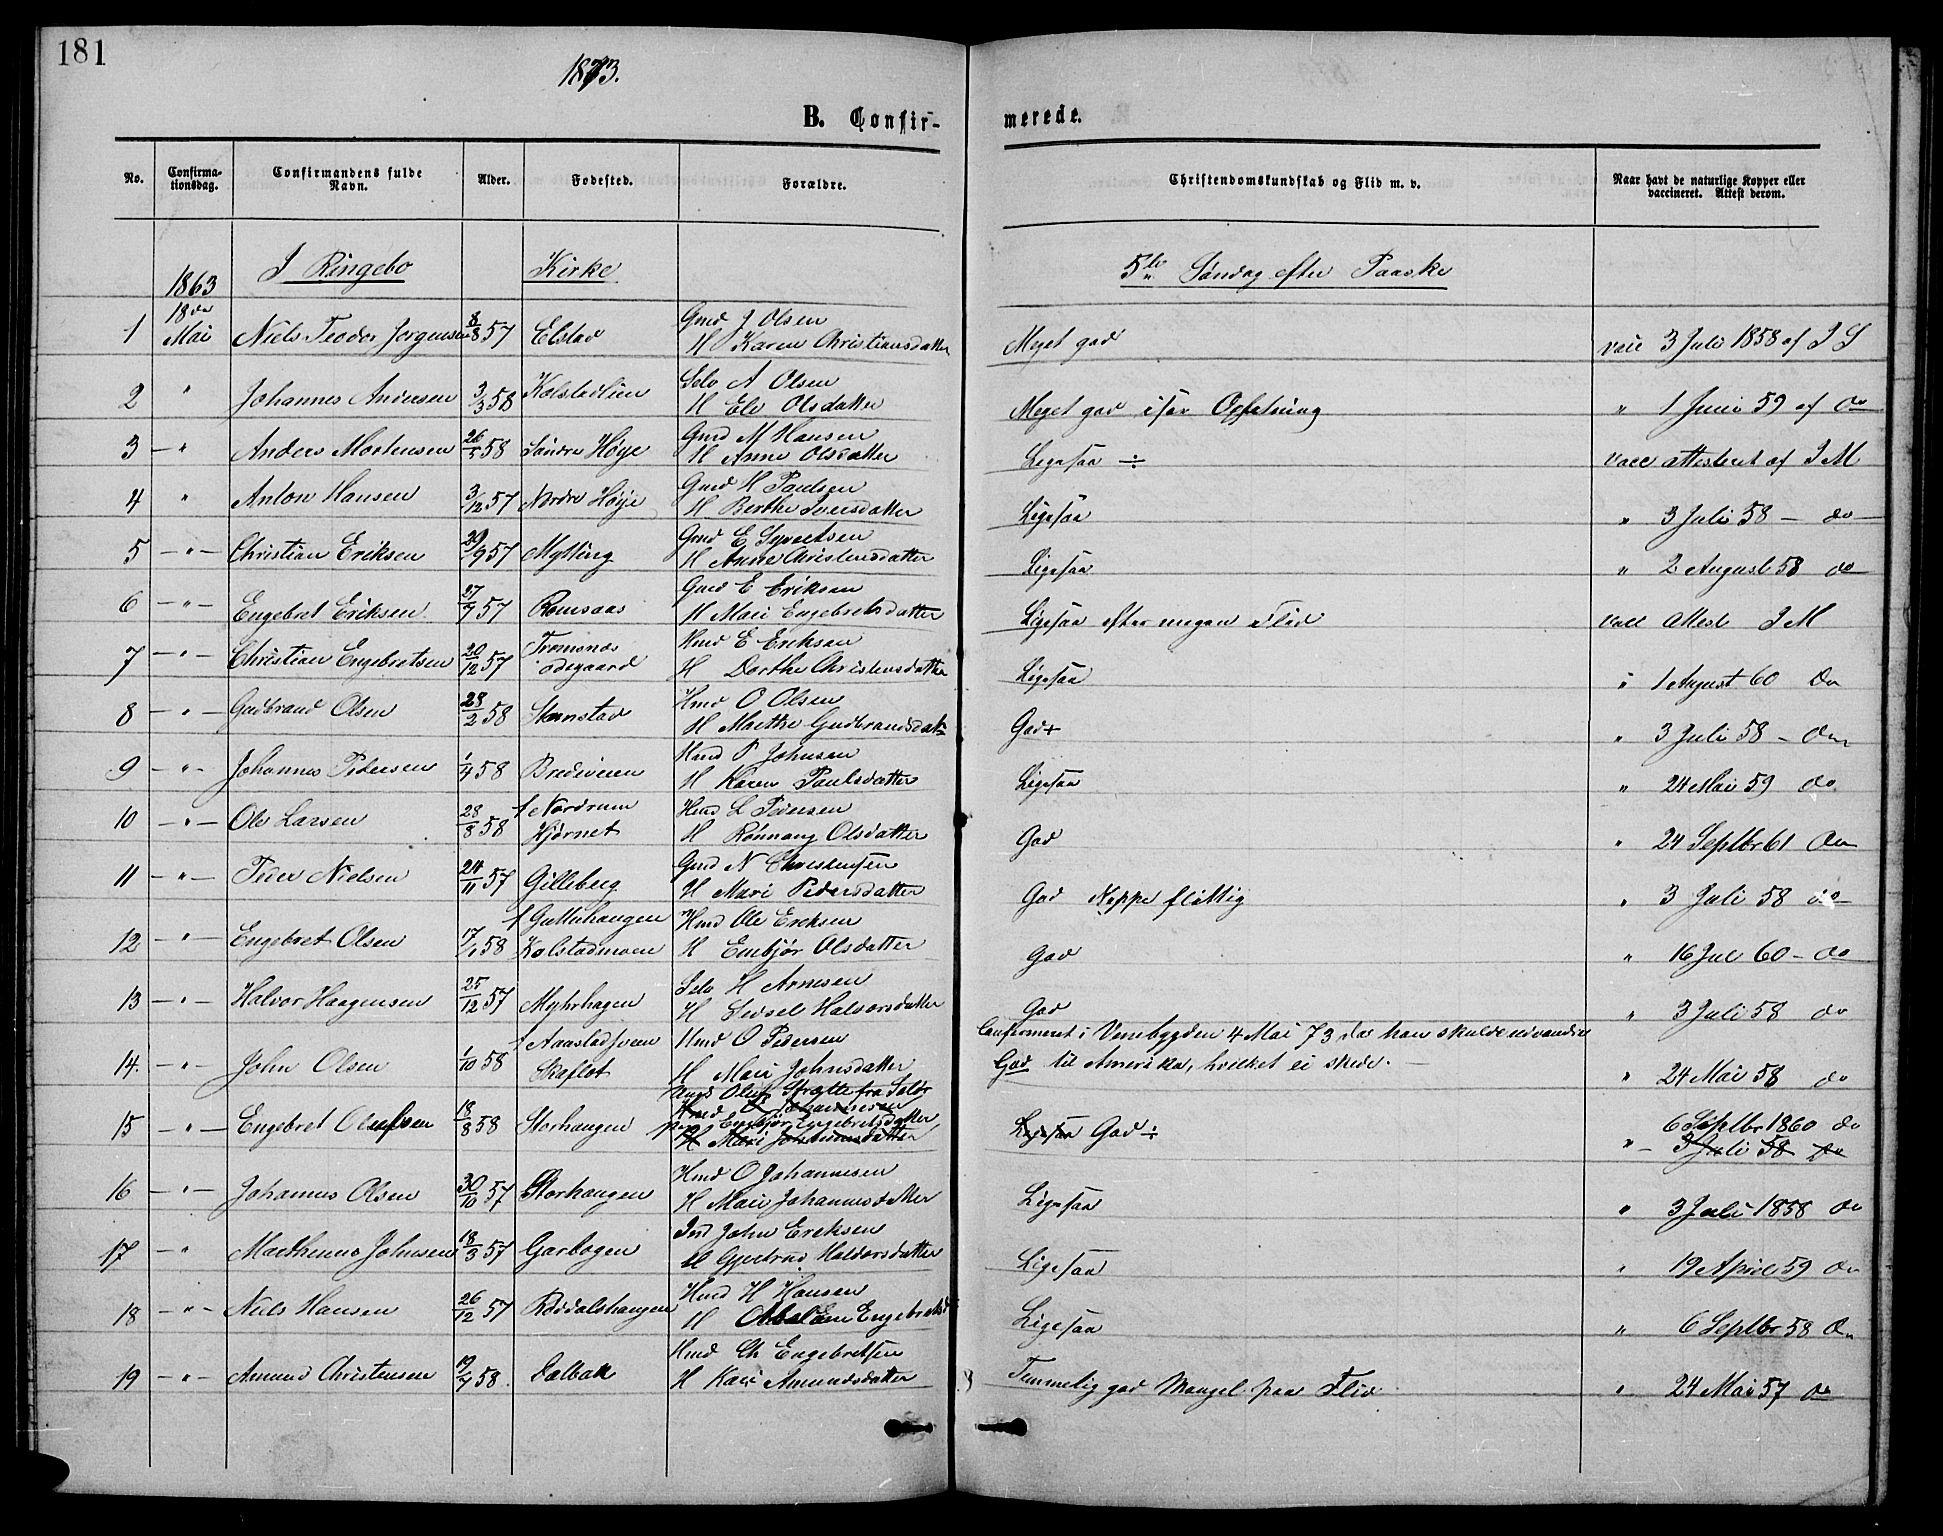 181
1873.
B. Confir-
merede.
No.
Confirma-
tionsdag.
Confirmandens fulde
Navn.
Alder.
Fødested.
Forældre.
Christendomskundskab og Flid m. v.
Naar havt de naturlige Kopper eller
vaccineret. Attest derom.
I Ringebo Kirke 5te Søndag efter Paaske
1863
18de
1 Mai Niels Teodor Jørgensen 8/8 57 Elstad Gmd J Olsen
H Karen Christiansdatter Meget god vacc 3 Juli 1858 af I S
2 " Johannes Andersen 3/3 58 Kolstadlien Selv A Olsen
H Eli Olsdatter Meget god især Opfatning " 1 Juni 59 af do
3 - " Anders Mortensen 26/5 58 Søndre Høye Gmd M Hansen
H Anne Olsdatter Ligesaa ÷ vacc attesteret af I M
4 " Anton Hansen 3/12 57 Nordre Høye Gmd H Paulsen
H Berthe Iversdatter Ligesaa " 3 Juli 58 - do
5 - " - Christian Eriksen 29/9 57 Mytting Gmd E Syvertsen
H Anne Christensdatter Ligesaa " 2 August 58 do
6 - " - Engebret Eriksen 27/7 57 Romsaas Gmd E Eriksen
H Mari Engebretsdatter Ligesaa efter megen Flid vacc Attest I M
7 - " - Christian Engebretsen 20/12 57 Tromsnes
ødegaard Hmd E Eriksen
H Dorthe Christensdatter Ligesaa " 1 August 60 do
8 - " - Gudbrand Olsen 28/2 58 Stenstad Hmd O Olsen
H Marthe Gudbrandsdatr God+ " 3 Juli 58 - do
9 - " - Johannes Pedersen 1/4 58 Bredeveien Hmd P Johnsen
H Karen Paulsdatter Ligesaa " 24 Mai 59 do
10 - " - Ole Larsen 28/8 58 f Nordrum
Hjørnet Hmd L Pedersen
H Rønnaug Olsdatter God " 24 Septbr 61 do
11 - " - Peder Nielsen 24/11 57 Gilleberg Gmd N Christensen
H Mari Pedersdatter God Neppe flittig " 3 Juli 58 do
12 - " - Engebret Olsen 17/1 58 f Guttuhaugen
Kolstadmoen Hmd Ole Eriksen
H Embjør Olsdatter God " 16 Jul 60 - do
13 - " - Halvor Haagensen 25/12 57 Myhrhagen Selv H Arnesen
H Sidsel Halvorsdatter God " 3 Juli 58 do
14. - " - John Olsen 1/10 58 f Aanstadsveen
Skaflot Hmd O Pedersen
H Mari Johnsdatter Confirmeret i Venebygden 4 Mai 73 da han skulde udvandre
God til Amerika, hvilket ei skede. " 24 Mai 58 do
15 - " - Engebret Olufsen 18/8 58 Storhaugen Ungk Oluf Strætte fra Selbo
Hmd O Johannesen
Pige Embjør Engebretsdatter
H Mari Johannesdatter Ligesaa God ÷ 6 Septbr 1860 do
" - 3 Juli 58 do
16 - " - Johannes Olsen 30/10 57 Storhaugen Hmd O Johannesen
H Mari Johannesdatter Ligesaa " 3 Juli 1858 do
17 - " Mathinus Johnsen 18/3 57 Garbogen Ind John Eriksen
H Gjertrud Haldorsdatter Ligesaa " 19 April 59 do
18 - " - Niels Hansen 26/12 57 Røddalshaugen Hmd H Hansen
H Engebretsd Ligesaa " 6 Septbr 58 do
19 - " - Amund Christensen 19/7 58. Dalbak Hmd Ch Engebretsen
H Kari Amundsdatter Temmelig god Mangel paa Flid " 24 Mai 57 do